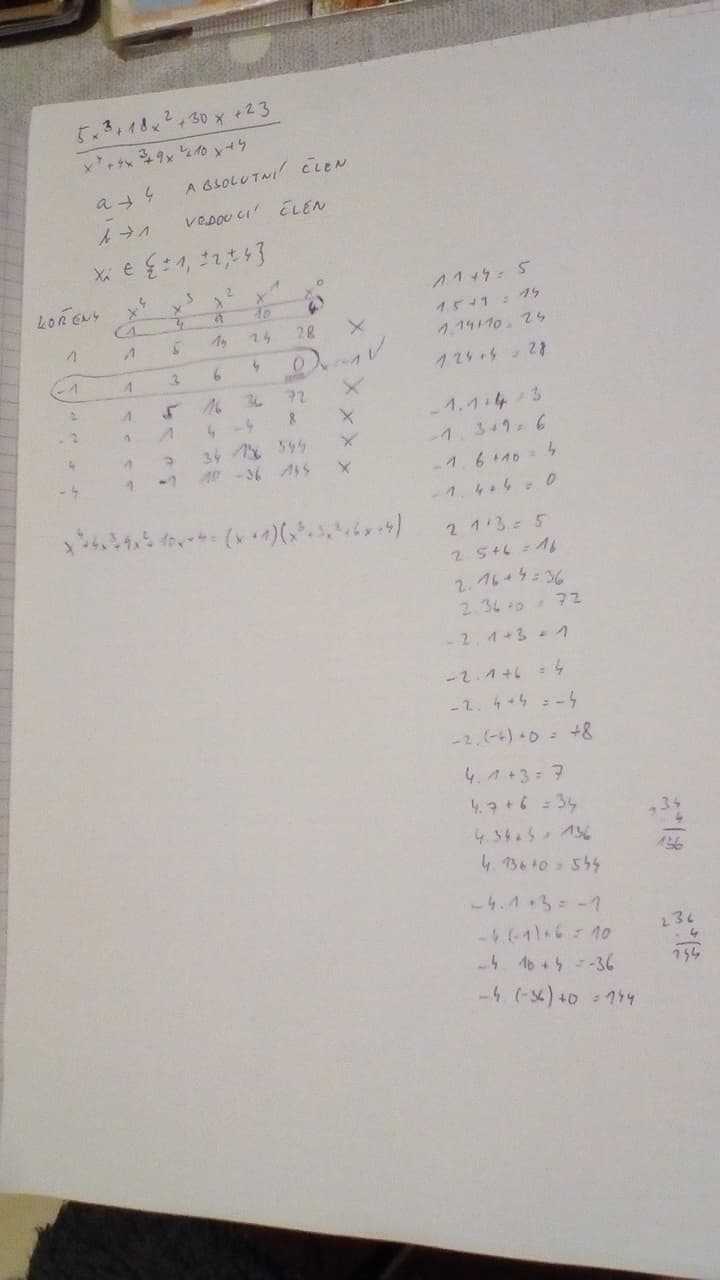 5x³+18x²+30x+23
x⁴+4x³+9x²+10x+4
a→4 ABSOLUTNÍ ČLEN
b→1 VEDOUCÍ ČLEN
xᵢ ∈ {±1, ±2, ±4}
KOŘENY x⁴ x³ x² x¹ x⁰
1 4 9 10 4
1 1 5 14 24 28 ×
-1 1 3 6 4 0 x=-1 ✓
2 1 5 16 36 72 ×
-2 1 1 4 -4 8 ×
4 1 7 34 136 544 ×
-4 1 -1 10 -36 144 ×
x⁴+4x³+9x²+10x+4=(x+1)(x³+3x²+6x+4)
1.1+4=5
1.5+9=14
1.14+10=24
1.24+4=28
-1.1+4=3
-1.3+9=6
-1.6+10=4
-1.4+4=0
2.1+3=5
2.5+6=16
2.16+4=36
2.36+0=72
-2.1+3=1
-2.1+6=4
-2.4+4=-4
-2.(-4)+0=+8
4.1+3=7
4.7+6=34
4.34+4=136
4.136+0=544
-4.1+3=-1
-4(-1)+6=10
-4.10+4=-36
-4.(-36)+0=144
1 34
.4
136
2 36
.4
144